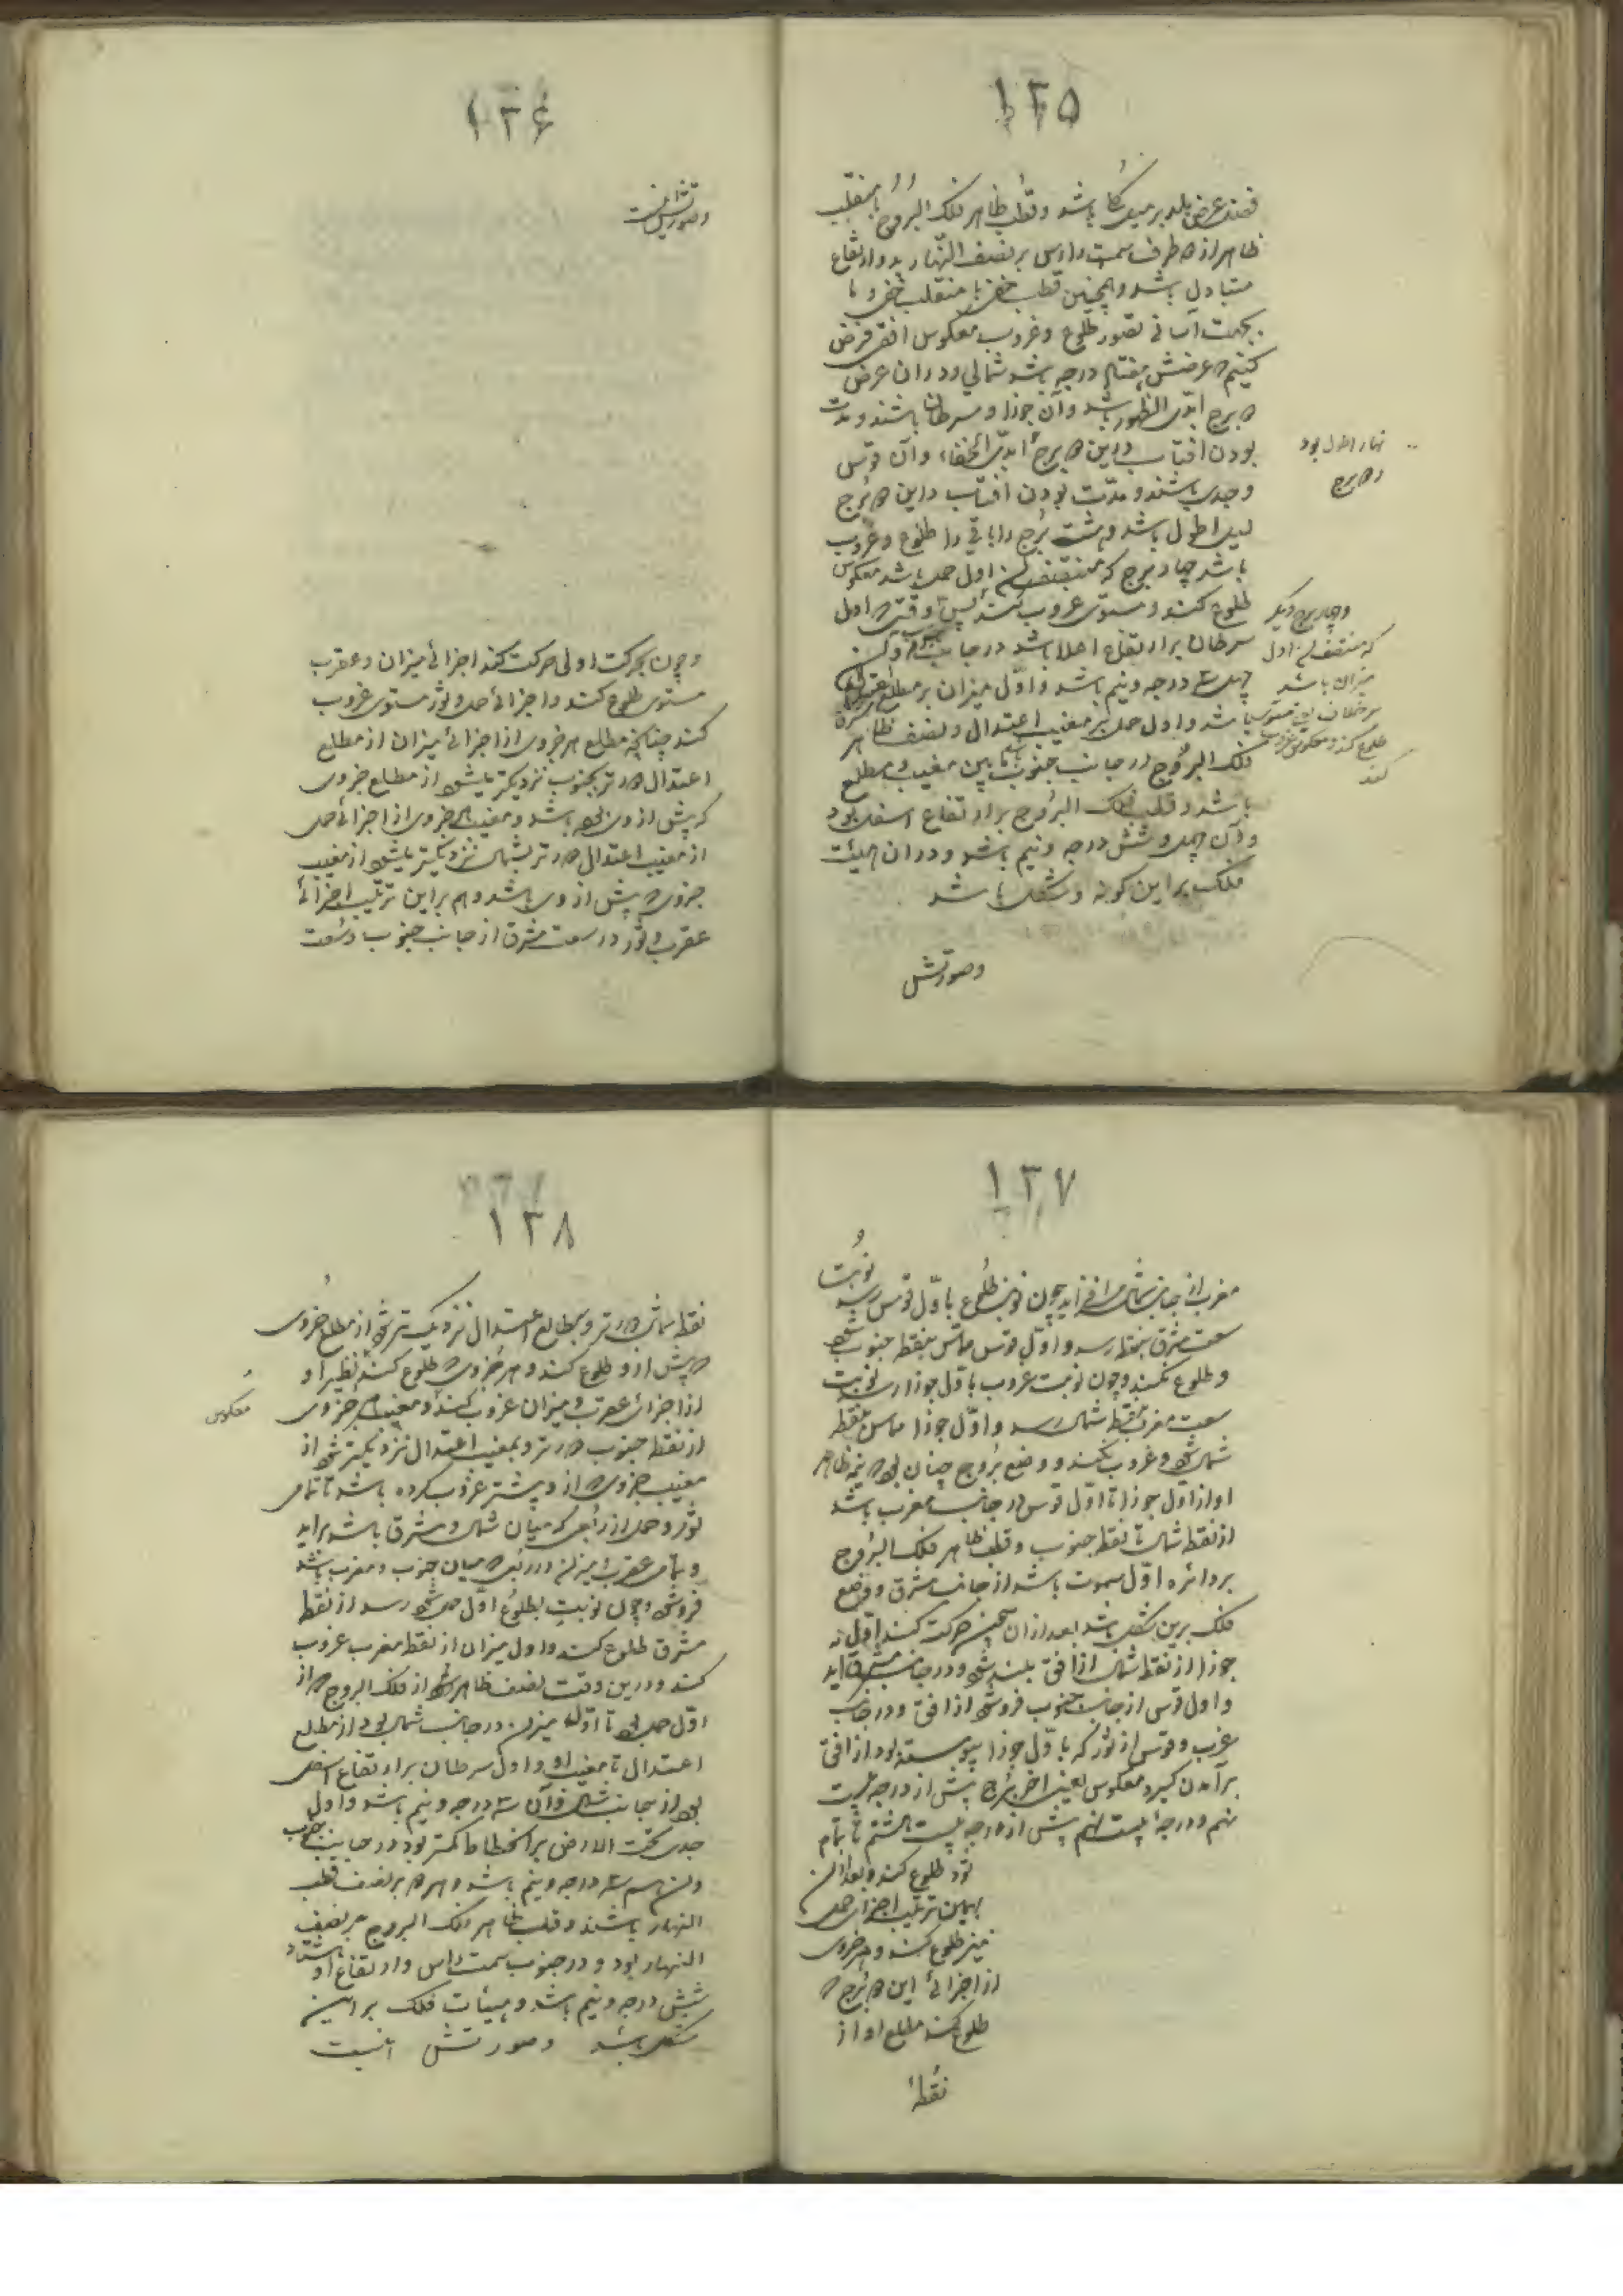 ۱۲۵
فضل عرض بلد بر میل کلی باشد و قطب ظاهر فلک البروج با منقلب
ظاهر از دو طرف سمت راس بر نصف النهار بود و ارتفاع
متبادل باشد و همچنین قطب خفی با منقلب خفی و ما
بجهت آسانی تصور طلوع و غروب معکوس افقی فرض
کنیم که عرضش هفتاد درجه باشد شمالی و در آن عرض
دو برج ابدی الظهور باشد و آن جوزا و سرطان باشند و مدت
بودن افتاب در این دو برج ابدی الخفاء و آن قوس
و جدی باشند و مدت بودن افتاب در این دو برج
لیل اطول باشد و هشت برج را باقی را طلوع و غروب
باشد چهار برج که منتصف آن اول حمل باشد معکوس
طلوع کنند و مستوی غروب کنند پس وقتی که اول
سرطان بر ارتفاع اعلا باشد در جانب جنوب و آن
چهل سه درجه و نیم باشد و اول میزان بر مطلع اعتدال
باشد و اول حمل بر مغیب اعتدال و نصف ظاهر
فلک البروج در جانب جنوب باشد مابین مغیب و مطلع
باشد و قطب فلک البروج بر ارتفاع اسفل بود
و آن چهل و شش درجه و نیم باشد و در آن هیئت
فلک بر این گونه و شکل باشد
وصورتش
نهار اطول بود
و دو برج
و چهار برج دیگر
که منتصف آن اول
میزان باشد
بر خلاف این مستوی
طلوع کنند و معکوس غروب
کنند
۱۲۶
وصورتش اینست
و چون بحرکت اولی حرکت کند اجزائ میزان و عقرب
مستوی طلوع کند و اجزائ حمل و ثور مستوی غروب
کند چنانچه مطلع هر جزوی از اجزائ میزان از مطلع
اعتدال دورتر بجنوب نزدیکتر باشد از مطلع جزوی
که پیش از وی بود باشد و مغیب هر جزوی از اجزائ حمل
از مغیب اعتدال دورتر بشمال نزدیکتر باشد از مغیب
جزوی که پیش از وی باشد و هم بر این ترتیب اجزائ
عقرب و ثور در سعت مشرق از جانب جنوب و سعت
۱۲۷
مغرب از جانب شمال می افزاید چون نوبت طلوع باول قوس رسد
سعت مشرق بنقطه رسد و اول قوس مماس نقطه جنوب شود
و طلوع نکند و چون نوبت غروب باول جوزا رسد نوبت
سعت مغرب بنقطه شمال رسد و اول جوزا مماس نقطه
شمال شود و غروب نکند و وضع بروج چنان بود که نیمه ظاهر
او از اول جوزا تا اول قوس در جانب مغرب باشد
از نقطه شمال تا نقطه جنوب و قطب ظاهر فلک البروج
بر دائره اول سموت باشد از جانب مشرق و وضع
فلک برین شکل باشد بعد از ان همین حرکت کند اول
جوزا از نقطه شمال از افق بلند شود و در جانب مشرق آید
و اول قوس از جانب جنوب فرو شود از افق و در جانب
غرب و قوس از ثور که باول جوزا پیوسته بود از افق
برآمدن گیرد معکوس یعنی اخر برج پیش از درجه بیست
نهم و درجه بیست نهم پیش از درجه بیست هشتم تا تمام
ثور طلوع کند و بعد از آن
بهمین ترتیب اجزای حمل
نیز طلوع کند و هر جزوی
از اجزائ این دو برج که
طلوع کند مطلع او از
نقطهٔ
۱۲۸
نقطه شمال دورتر و بمطلع اعتدال نزدیکتر شود از مطلع جزوی
که پیش از و طلوع کند و هر جزوی که طلوع کند نظیر او
از اجزای عقرب و میزان غروب کند و مغیب هر جزوی
معکوس
از نقطه جنوب دورتر و بمغیب اعتدال نزدیکتر شود از
مغیب جزوی که از و پیشتر غروب کرده باشد تا تمامی
ثور و حمل از ربعی که میان شمال و مشرق باشد براید
و تمامی عقرب و میزان در ربعی که میان جنوب و مغرب باشد
فرو شود و چون نوبت بطلوع اول حمل رسد از نقطه
مشرق طلوع کند و اول میزان از نقطه مغرب غروب
کند و درین وقت نصف ظاهر از فلک البروج که از
اول حمل بود تا اول میزان در جانب شمال بود از مطلع
اعتدال تا مغیب او و اول سرطان بر ارتفاع اسفل
بود از جانب شمال و آن سه درجه و نیم باشد و اول
جدی تحت الارض بر انحطاط کمتر بود در جانب جنوب
و آن هم سه درجه و نیم باشد و هر دو بر نصف
النهار باشند و قطب ظاهر فلک البروج بر نصف
النهار بود و در جنوب سمت راس و ارتفاع او هشتاد
شش درجه و نیم باشد و هیئات فلک بر این
شکل باشد وصورتش اینست